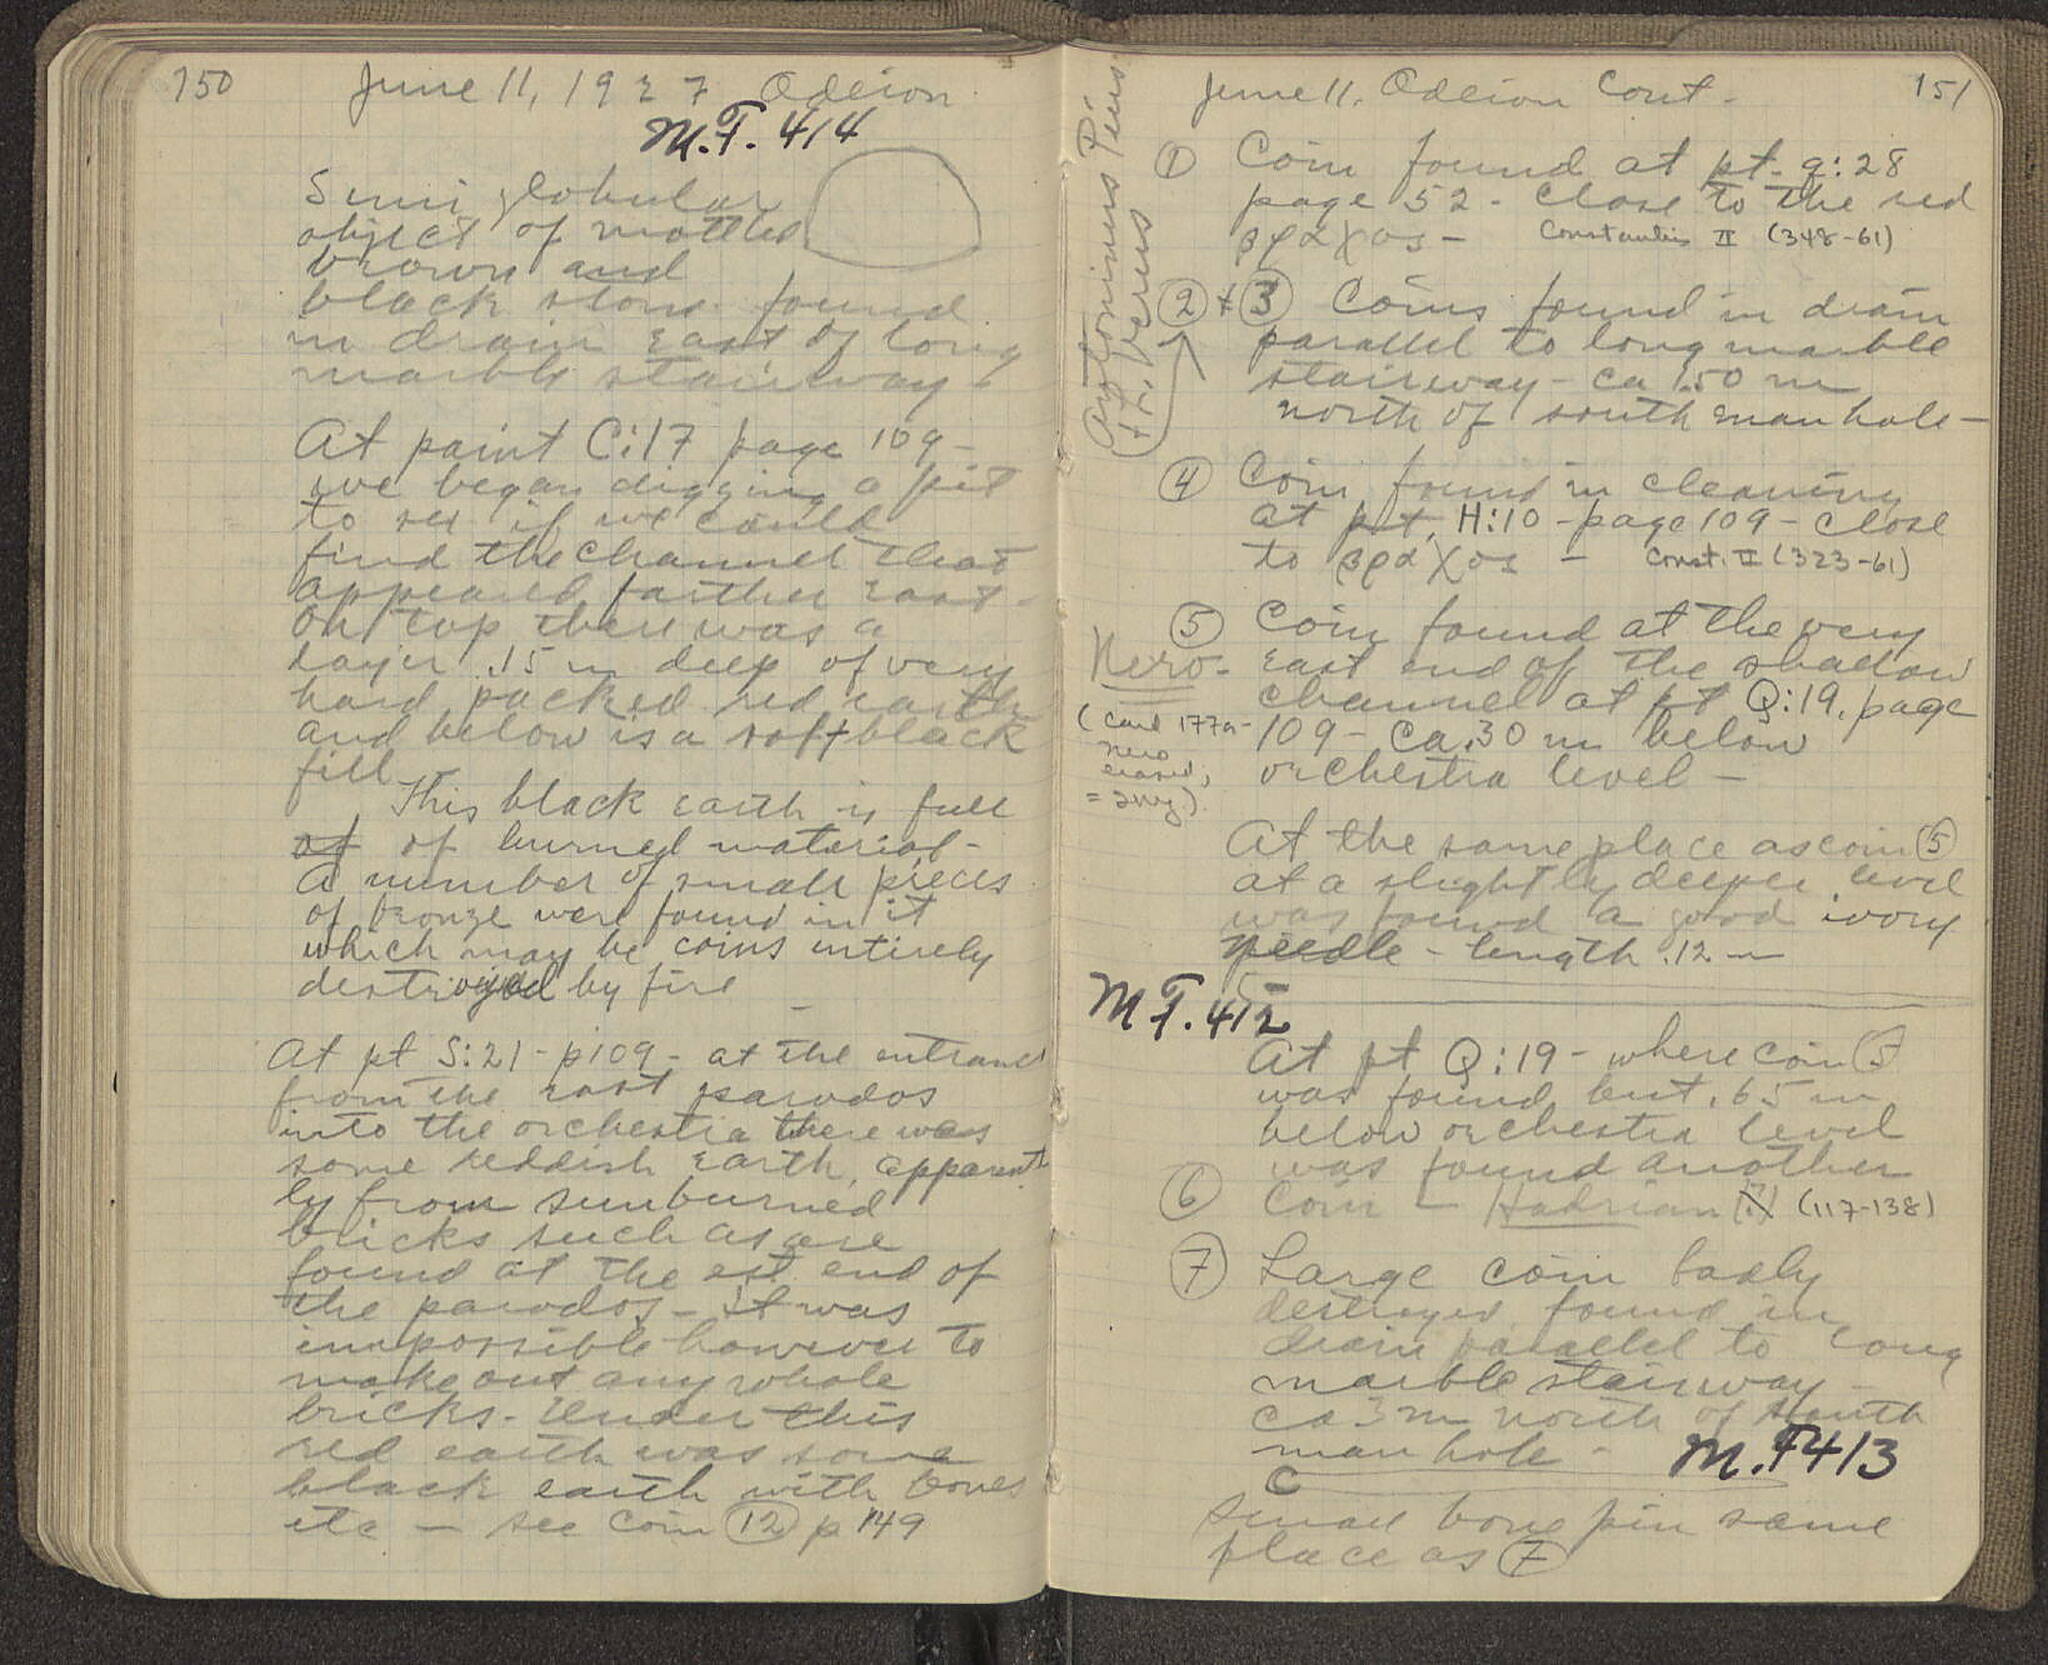 150
June 11, 1927 Odeion
M.F. 414
Semi globular
object of mottled
brown and
black stone found
in drain east of long
marble stairway -
At point C:17 page 109 -
we began digging a pit
to see if we could
find the channel that
appeared farther east -
On top there was a
layer .15 m deep of very
hard packed red earth
and below is a soft black
fill -
This black earth is full
of of burned material -
A number of small pieces
of bronze were found in it
which may be coins entirely
destroyed by fire -
At pt S:21 - p109 - at the entrance
from the east parodos
into the orchestra there was
some reddish earth, apparent
ly from sunburned
bricks such as are
found at the est end of
the parodos - it was
impossible however to
make out any whole
bricks - Under this
red earth was some
black earth with bones
etc - see coin 12 p 149
June 11. Odeion Cont -
151
① Coin found at pt. q:28
page 52 - Close to the red
βράχος - Constantius II (348-61)
② + ③ Coins found in drain
parallel to long marble
stairway - ca 1.50 m
north of south manhole -
Antoninus Pius
+ L. Verus
④ Coin found in cleaning
at pt. H:10 - page 109 - close
to βράχος - Const. II (323-61)
⑤ Coin found at the very
Nero - east end of the shallow
channel at pt Q:19, page
109 - Ca .30 m below
orchestra level -
(card 177a -
nero
erased,
At the same place as coin ⑤
at a slightly deeper level
was found a good ivory
needle - length .12 m
M F. 412
At pt Q:19 - where coin 5
was found but .65 m
below orchestra level
was found another
⑥ Coin - Hadrian (?) (117-138)
⑦ Large coin badly
destroyed found in
drain parallel to long
marble stairway -
Ca 3 m north of south
man hole -
M.F 413
C
Small bone pin same
place as ⑦